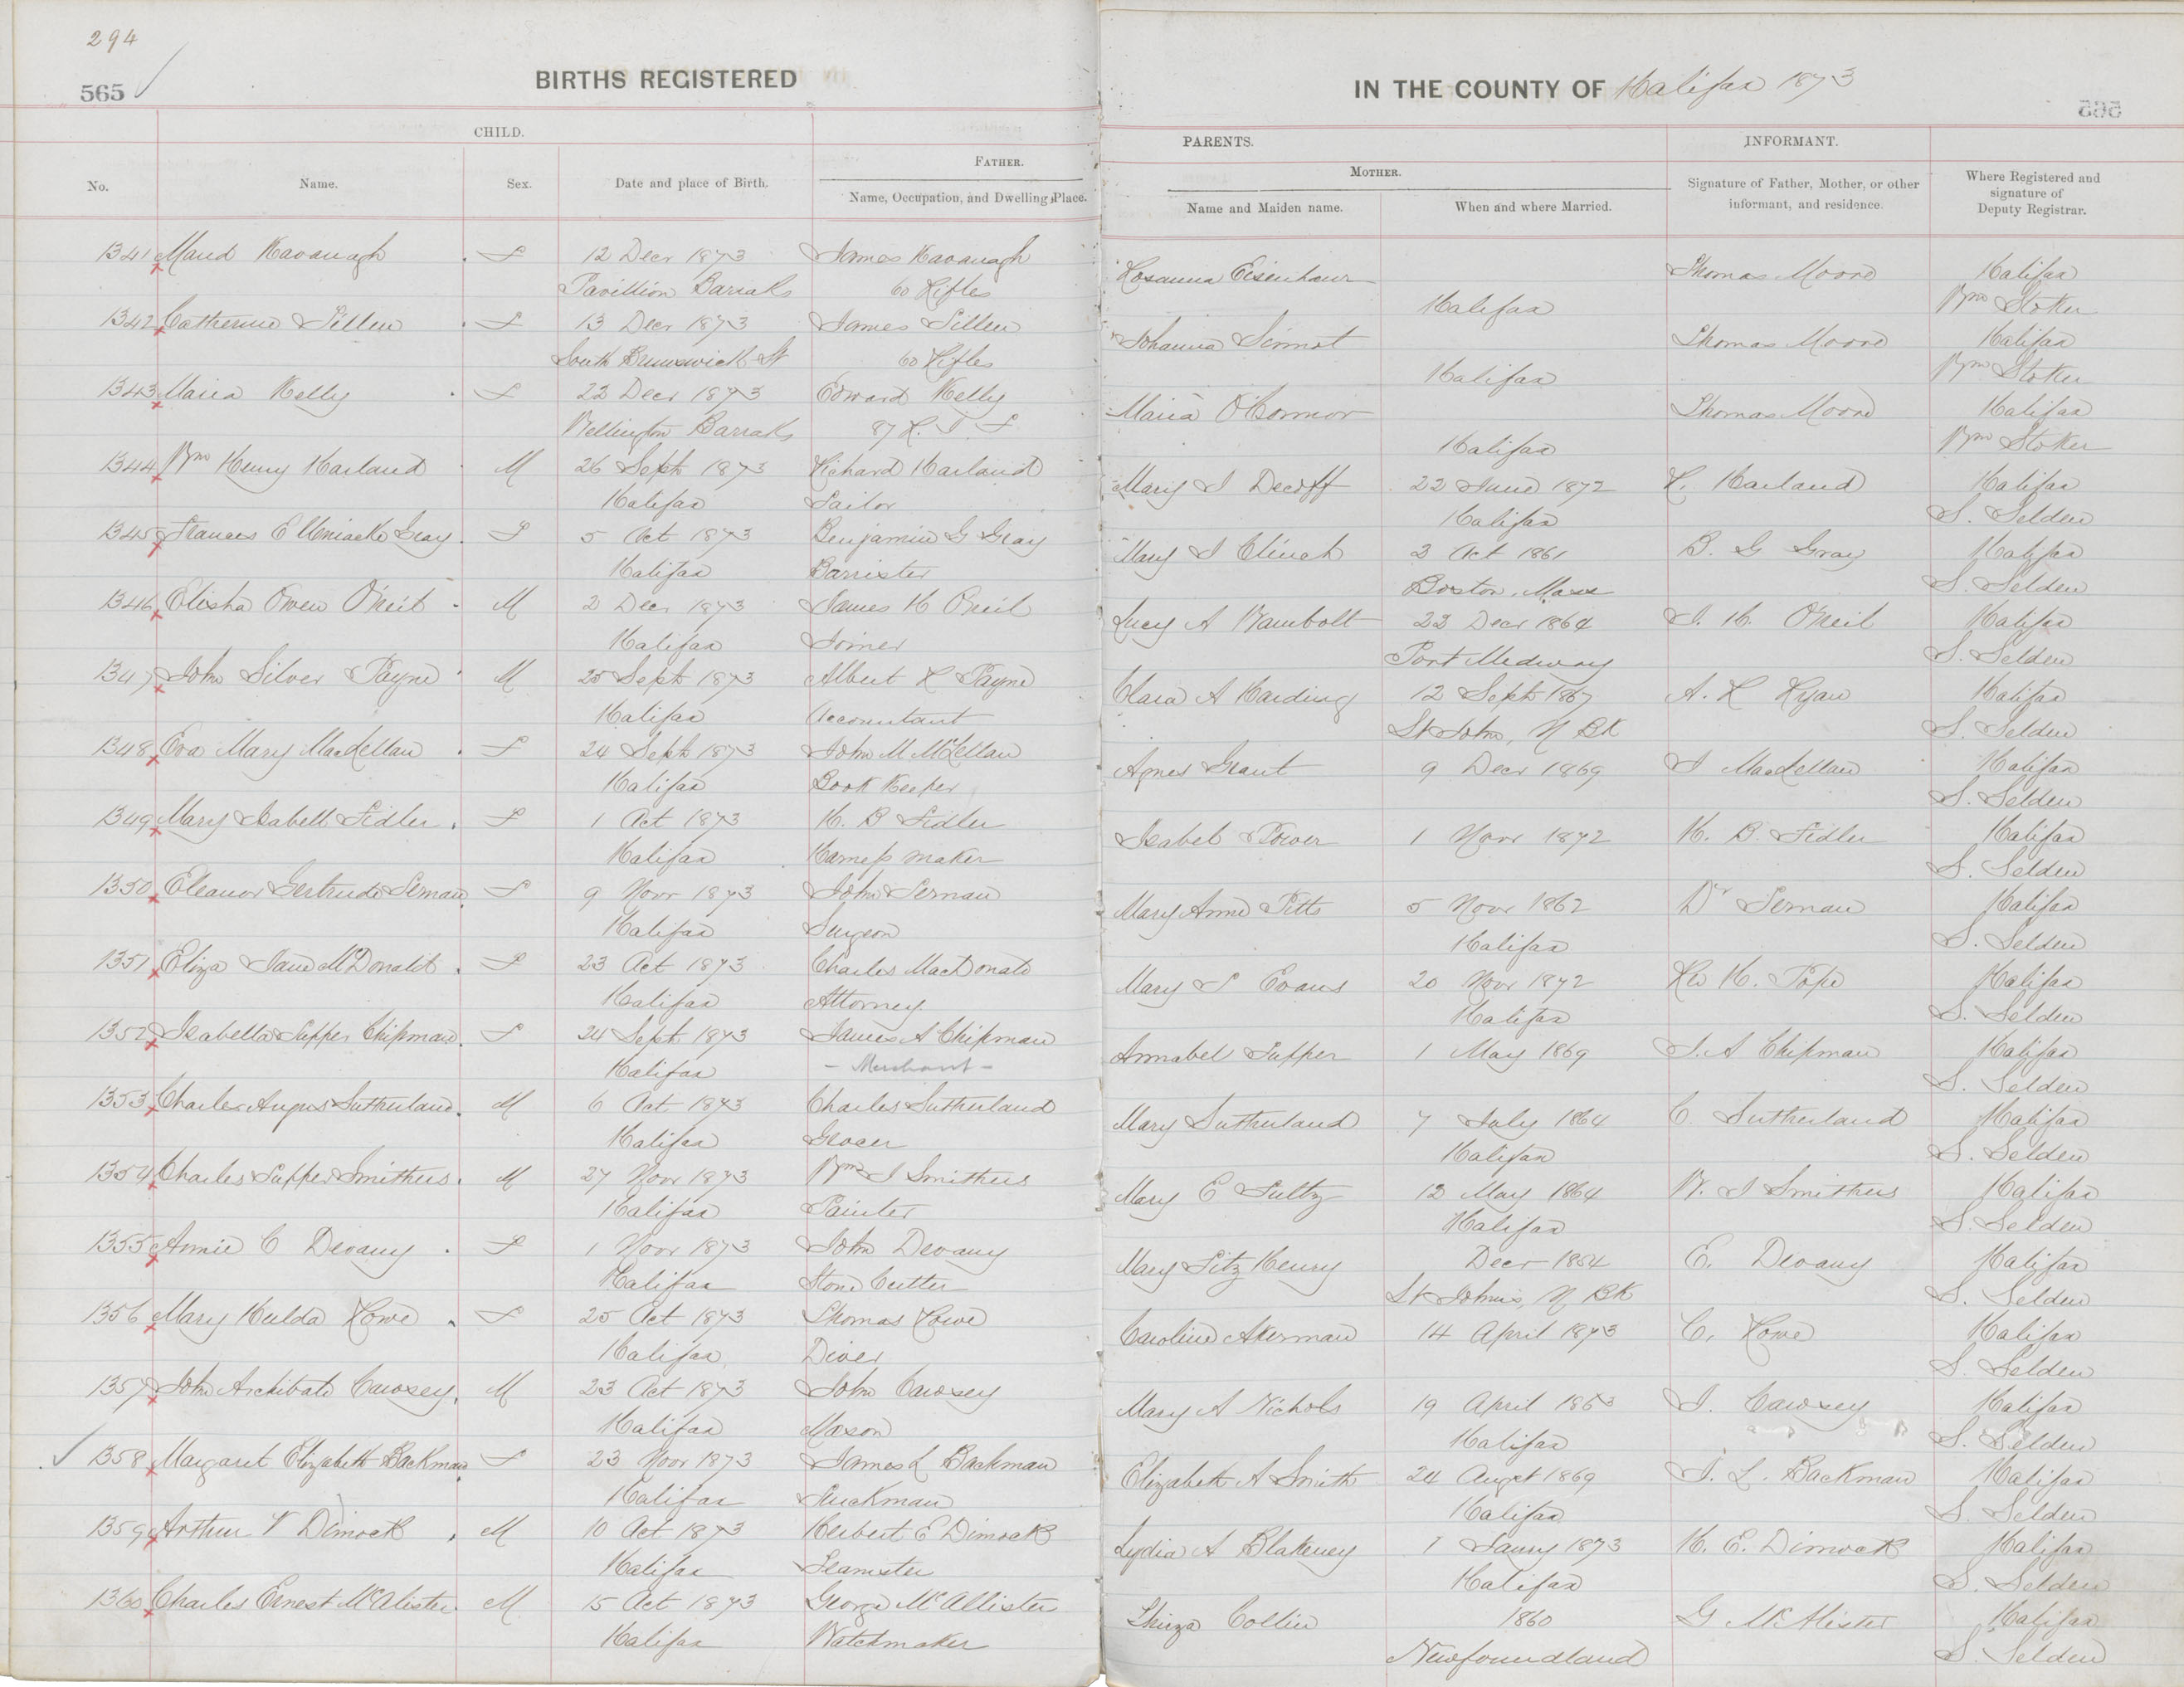 294
565
BIRTHS REGISTERED
IN THE COUNTY OF Halifax 1873
CHILD.
PARENTS.
INFORMANT.
No.
Name.
Sex.
Date and place of Birth.
FATHER.
Name, Occupation, and Dwelling Place.
MOTHER.
Name and Maiden name.
When and where Married.
Signature of Father, Mother, or other
informant, and residence.
Where Registered and
signature of
Deputy Registrar.
1341 Maud Kavanagh F 12 Decr 1873 James Kavanagh Rosanna Eisenhaur Thomas Moore Halifax
Pavillion Barraks 60 Rifles Halifax Wm Stoker
1342 Catherine F 13 Decr 1873 James Johanna Sinnot Thomas Moore Halifax
South Brunswick St 60 Rifles Halifax Wm Stoker
1343 Maria Kelly F 22 Decr 1873 Edward Kelly Maria O'Connor Thomas Moore Halifax
Wellington Barraks 87 R. I. F. Halifax Wm Stoker
1344 Wm Henry Harland M 26 Sept 1873 Richard Harland Mary J Decoff 22 June 1872 R. Harland Halifax
Halifax Tailor Halifax S. Selden
1345 Frances E Uniacke Gray F 5 Oct 1873 Benjamin G Gray Mary J Clinch 2 Oct 1861 B. G Gray Halifax
Halifax Barrister Boston, Mass S. Selden
1346 Elisha Owen O'Neil M 2 Decr 1873 James H O'Neil Lucy A Wambolt 22 Decr 1864 J. H. O'Neil Halifax
Halifax Joiner Port Medway S. Selden
1347 John Silver Payne M 25 Sept 1873 Albert R Payne Clara A Harding 12 Sept 1867 A. R Ryan Halifax
Halifax Accountant St John, N BK S. Selden
1348 Eva Mary MacLellan F 24 Sept 1873 John M McLellan Agnes Grant 9 Decr 1869 J MacLellan Halifax
Halifax Book Keeper S. Selden
1349 Mary Isabell Fidler F 1 Oct 1873 H. B Fidler Isabel Power 1 Novr 1872 H. B. Fidler Halifax
Halifax Harness maker S. Selden
1350 Eleanor Gertrude Sernan F 9 Novr 1873 John Sernan Mary Anne Pitts 5 Novr 1862 Dr Sernan Halifax
Halifax Surgeon Halifax S. Selden
1351 Eliza Jane McDonald F 23 Oct 1873 Charles MacDonald Mary F Evans 20 Novr 1872 Rev H. Pope Halifax
Halifax Attorney Halifax S. Selden
1352 Isabella Tupper Chipman F 24 Sept 1873 James A Chipman Annabel Tupper 1 May 1869 J. A Chipman Halifax
Halifax - Merchant - S. Selden
1353 Charles Angus Sutherland M 6 Oct 1873 Charles Sutherland Mary Sutherland 7 July 1864 C Sutherland Halifax
Halifax Grocer Halifax S. Selden
1354 Charles Tupper Smithers M 27 Novr 1873 Wm J Smithers Mary E Fultz 12 May 1864 W. J Smithers Halifax
Halifax Painter Halifax S. Selden
1355 Annie C Devany F 1 Novr 1873 John Devany Mary Fitz Henry Decr 1854 E. Devany Halifax
Halifax Stone Cutter St Johns, N BK S. Selden
1356 Mary Hulda Lowe F 25 Oct 1873 Thomas Lowe Caroline Akerman 14 April 1873 C. Lowe Halifax
Halifax Diver S. Selden
1357 John Archibald Cawsey M 23 Oct 1873 John Cawsey Mary A Nichols 19 April 1853 J. Cawsey Halifax
Halifax Mason Halifax S. Selden
1358 Margaret Elizabeth Backman F 23 Novr 1873 James L Backman Elizabeth A Smith 24 Augst 1869 J. L. Backman Halifax
Halifax Truckman Halifax S. Selden
1359 Arthur V Dimock M 10 Oct 1873 Herbert E Dimock Lydia A Blakeney 1 Jany 1873 H. E. Dimock Halifax
Halifax Teamster Halifax S. Selden
1360 Charles Ernest McAlister M 15 Oct 1873 George McAllister Thirza Collin 1860 G McAlister Halifax
Halifax Watchmaker Newfoundland S. Selden